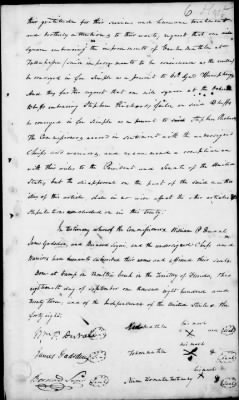 their gratitude for this service and humane treatment
and brotherly attentions to their wants, request that one mile
square embracing the improvements of Enehe Mathla at
Tallahassee (said improvements to be considered as the centre)
be conveyed in fee simple as a present to Col Gad Humphreys.
And they further request that one mile square at the Ochesee
Bluffs embracing Stephen Richards field on said Bluffs
be conveyed in fee simple as a present to said Stephen Richards.
The commissioners accord in sentiment with the undersigned
chiefs and warriors, and recommend a compliance
with their wishes by the President and Senate of the United
States, but the disapproval on the part of the said authorities
of this article, shall in no wise affect the other articles &
stipulations concluded on in this treaty.
In testimony whereof, the Commissioners William P. Duval,
James Gadsden, and Bernard Segui, and the undersigned chiefs and
warriors have hereunto subscribed their names and affixed their seals.
Done at camp on Moultrie creek in the Territory of Florida, this
eighteenth day of September one thousand eight hundred and
twenty three, and of the Independence of the United States the
forty eighth.
Wm P. Duval
his mark
X
James Gadsden
his mark
X
Bernard Segui
his mark
X